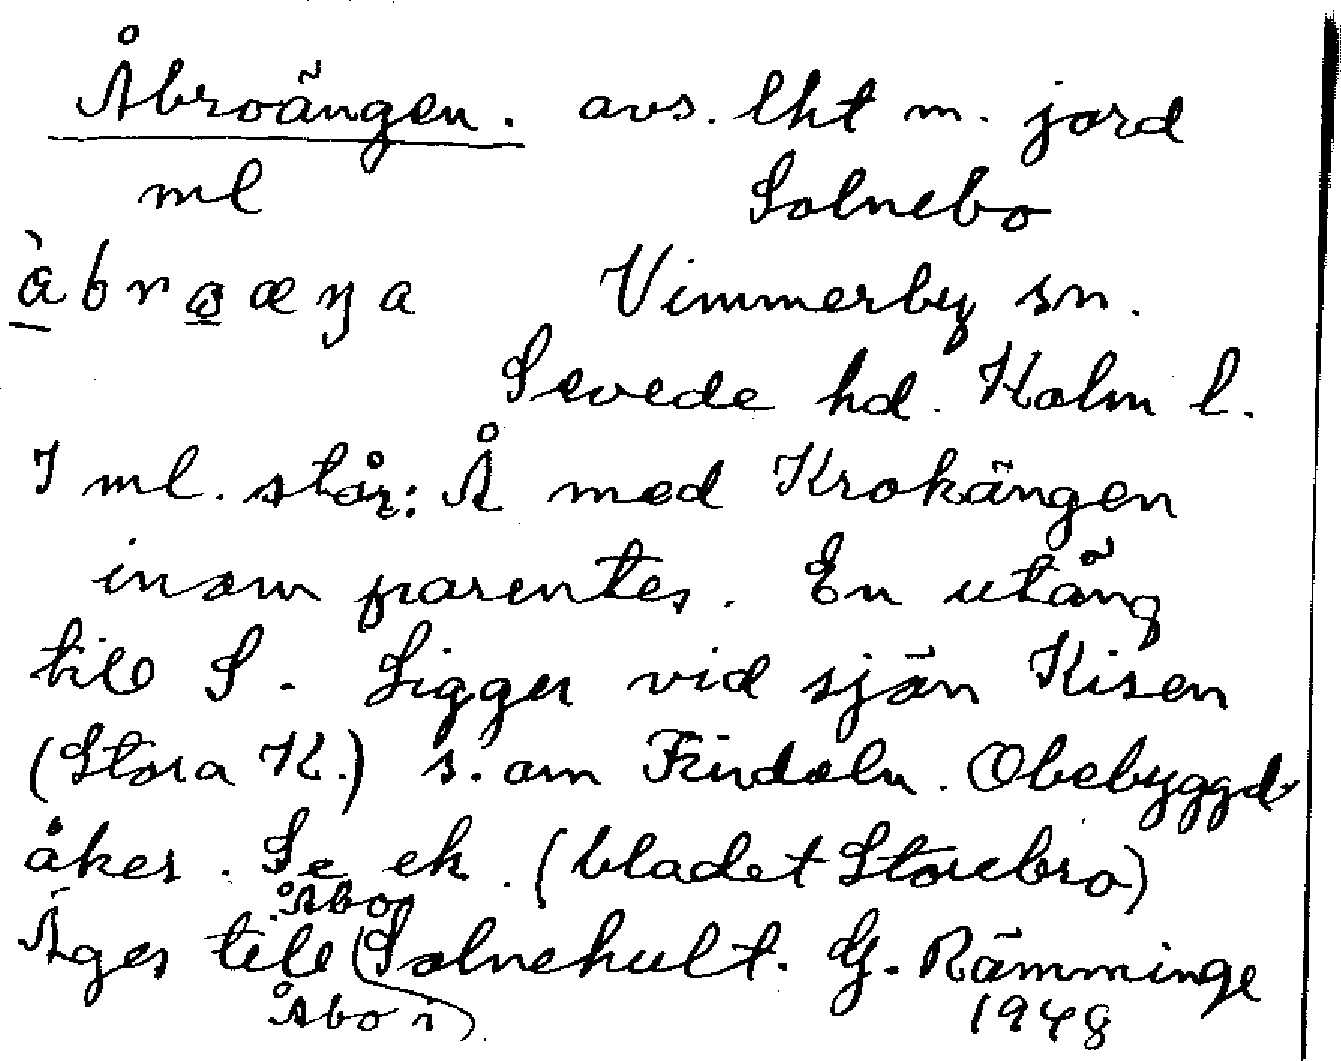 Åbroängen. avs. lht m. jord
ml Solnebo
åbroæŋa Vimmerby sn.
Sevede hd. Kalm l.
I ml. står: Å med Krokängen
inom parentes. En utäng
till S. Ligger vid sjön Kisen
(Stora K.) s. om Findaln. Obebyggd
åker. Se ek. (bladet Storebro)
Åbo
Äges till (Solnehult. G. Rämminge
Åbo i) 1948